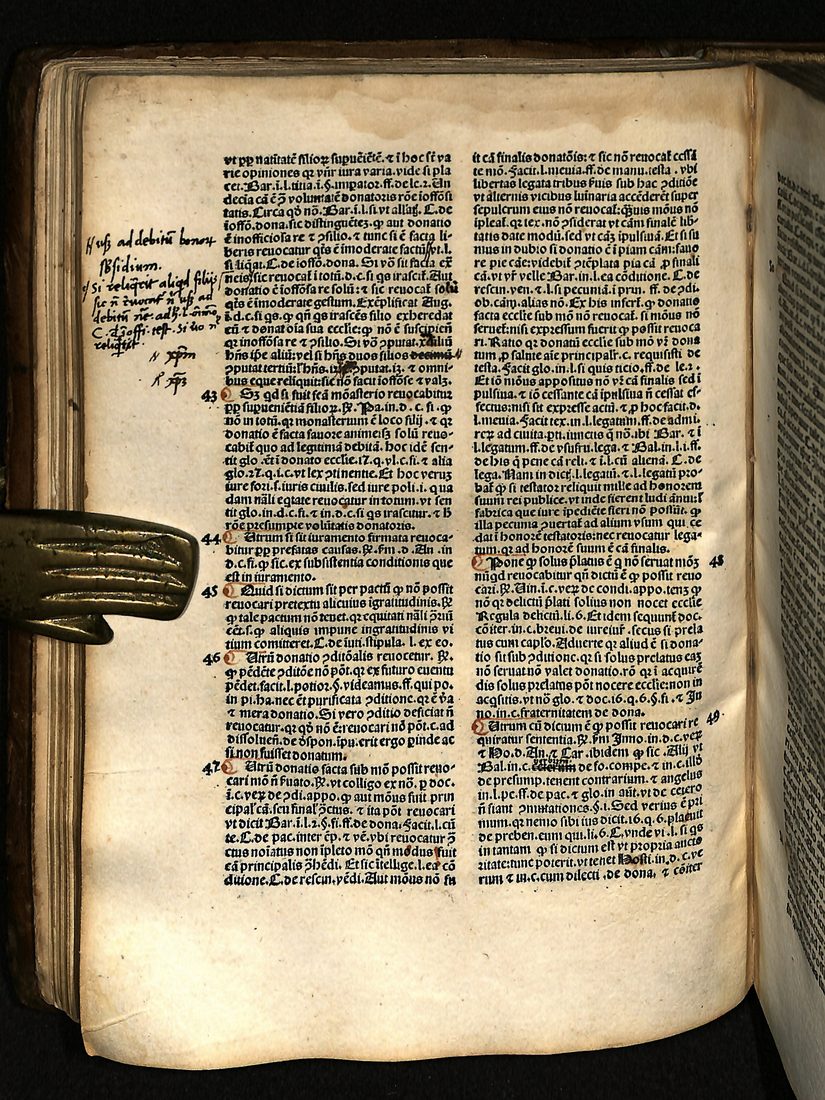 vt ꝓp natiuitatē filioꝝ supueiētē. ⁊ i hoc sūt va
rie opiniones qr vnr iura varia. vide si pla
cet. Bar. i. l. titia. i. §. impator. ff. de le. 2. An
decia cā ē ꝓ volūtatē donatoris rōe ioffōsi
tatis. Circa qd nō. Bar. i. l. si vt allaṫ. C. de
ioffō. dona. sic distinguētez. ꝙ aut donatio
ē inofficiosa re ⁊ ꝯsilio. ⁊ tunc si ē facta li-
beris reuocatur qtꝰ ē imoderate factū vt. l.
si liqat. C. de ioffō. dona. Si vo sit facta ex
neis sic reuocat i totū. d. c. si qs irascit. Aut
donatio ē ioffōsa re solū: ⁊ sic reuocat solū
qtꝰ ē imoderate gestum. Exēplificat Aug.
i. d. c. si qs. ꝙ qn qs irascēs filio exheredat
eū ⁊ donat oīa sua ecclie: ꝙ nō ē suscipien
qr inoffōsa re ⁊ ꝯsilio. Si vo ꝯputat
hns ipe aliū: vel si hns duos filios decimū
ꝯputat tertiū: l. hns. ꝯputat. ⁊ omni-
bus eque reliquit: sic nō facit ioffōse ⁊ valz.
43 Sz qd si fuit seā mōasterio reuocabitur
ꝓp supueniētiā filioꝝ. ℞. Pa. in. d. c. si. ꝙ
nō in totū: qr monasterium ē loco filij. ⁊ qr
donatio ē facta fauore anime: sz solū reuo-
cabit quo ad legitimā debitā. hoc idē sen-
tit glo. ⁊ i donato ecclie. 17. q. vl. c. si. ⁊ alia
glo. 27. q. i. c. vt lex ꝯtinentie. Et hoc verum
iure fori. s. iuris ciuilis. sed iure poli. i. qua
dam nāli eqtate reuocatur in totum. vt sen
tit glo. in. d. c. fi. ⁊ in. d. c. si qs irascitur. ⁊ h
rōe presumpte volūtatis donatoris.
44 Utrum si sit iuramento firmata reuoca-
bitur ꝓp prefatas causas. ℞. fm. d. An. in
d. c. fi. ꝙ sic. ex subsistentia conditionis que
est in iuramento.
45 Quid si dictum sit per pactū ꝙ nō possit
reuocari pretextu alicuius igratitudinis. ℞
ꝙ tale pactum nō tenet. qr equitati nāli ꝯrium
eēt. s. ꝙ aliquis impune ingratitudinis vi
tium comitteret. C. de iuti. stipula. l. ex eo.
46 Utrū donatio ꝯditōalis reuocetur. ℞.
ꝙ pēdēte ꝯditōe nō pōt. qr ex futuro euentu
pēdet. facit. l. potior. §. videamus. ff. qui po.
in pi. ha. nec ē t purificata ꝯditione. qr ē va
⁊ mera donatio. Si vero ꝯditio deficiat n
reuocatur. qr qd nō ē: reuocari nō pōt. c. ad
dissoluen. de dspon. ipu. erit ergo ꝑinde ac
si non fuisset donatum.
47 Utrū donatio facta sub mō possit reuo-
cari mō n suato. ℞. vt colligo ex nō. p doc.
i. c. veꝝ de ꝯdi. appo. ꝙ aut mōus fuit prin
cipal cā. seu final ꝯctus. ⁊ ita pōt reuocari
vt dicit Bar. i. l. 2. §. fi. ff. de dona. facit. l. cū
te. C. de pac. inter ep. ⁊ ve. vbi reuocatur ꝯ
ctus noiatus non ipleto mō qn modus fuit
cā principalis ꝯhēdi. Et sic itellige. l. ea cō
ditione. C. de rescin. vēdi. Aut mōus nō fu
it cā finalis donatōis: ⁊ sic nō reuocat cessā
te mō. facit. l. meuia. ff. de manu. testa. vbi
libertas legata tribus suis sub hac ꝯditiōe
vt alternis vicibus luinaria accēderēt super
sepulcrum eius nō reuocat: quis mōus nō
ipleat. qr tex. nō ꝯsiderat vt cām finalē lib-
tatis date modū. sed vt cāꝫ ipulsiuā. Et si su
mus in dubio si donatio ē i piam cām: fauo
re pie cāe: videbit ꝯcēplata pia cā ꝓ finali
cā. vt vr velle Bar. in. l. ea cōditione. C. de
rescin. ven. ⁊ l. si pecuniā. i prin. ff. de ꝯdi.
ob. cām. alias nō. Ex his infert. ꝙ donatio
facta ecclie sub mō nō reuocat. si mōus nō
seruet: nisi expressum fuerit ꝙ possit reuoca
ri. Ratio qr donatū ecclie sub mō vr dona
tum ꝓ salute aīe principalr. c. requisisti de
testa. facit glo. in. l. si quis ticio. ff. de le. 2.
Et iō mōus appositus nō vr cā finalis sed i
pulsiua. ⁊ iō cessante cā ipulsiua n cessat ef-
fectus: nisi sit expresse actū. ⁊ ꝓ hoc facit. d.
l. meuia. facit tex. in. l. legatum. ff. de admi.
reꝝ ad ciuita. pti. iunctis q nō. ibi Bar. ⁊ i
l. legatum. ff. de vsufru. lega. ⁊ Bal. in. l. i. ff.
de his q pene cā reli. ⁊ i. l. cū aliena. C. de
lega. Nam in dict. l. legatū. ⁊. l. legatū pro-
bat ꝙ si testator reliquit mille ad honorem
suum rei publice. vt inde fierent ludi ānui: l
fabrica que iure ipediēte fieri nō possūt. ꝙ
illa pecunia ꝯuertat ad alium vsum qui. ce
dat i honorē testatoris: nec reuocatur lega-
tum. qr ad honorē suum ē cā finalis.
48 Pone ꝙ solus platus ē q nō seruat mōꝫ
nūqd reuocabitur qn dictū ē ꝙ possit reuo
cari. ℞. An. i. c. veꝝ de condi. appo. tenꝫ ꝙ
nō qr delictū plati solius non nocet ecclie
Regula delictū. li. 6. Et idem sequunt doc.
cōiter. in. c. breui. de iureiur. secus si prela
tus cum caplo. Aduerte qr aliud ē si dona-
tio sit sub ꝯditione. qr si solus prelatus eaꝫ
nō seruat nō valet donatio. rō qr i acquirē
dis solus prelatus pōt nocere ecclie: non in
acqsitis. vt nō. glo. ⁊ doc. 16. q. 6. §. fi. ⁊ In
no. in. c. fraternitatem de dona.
49 Utrum cū dictum ē ꝙ possit reuocari re
quiratur sententia. ℞. fm Inno. in. d. c. veꝝ
⁊ Ho. d. An. ⁊ Car. ibidem ꝙ sic. Alij vt
Bal. in. c. de fo. compe. ⁊ in. c. illo
de presump. tenent contrarium. ⁊ angelus
in. l. pe. ff. de pac. ⁊ glo. in aūt. vt de cetero
n fiant ꝯmutationes. §. i. Sed verius ē pri
mum. qr nemo sibi ius dicit. 16. q. 6. placuit
de preben. cum qui. li. 6. C. vnde vi. l. si qs
in tantam ꝙ si dictum est vt propria aucto
ritate: tunc poterit. vt tenet Hosti. in. d. c. ve
rum ⁊ in. c. cum dilecti. de dona. ⁊ cōiter
ad debitū bonoꝝ
sbsidium.
Si reliqerit aliqd filijs
C. d. ioffi. test. Si vo n
reliqerit.